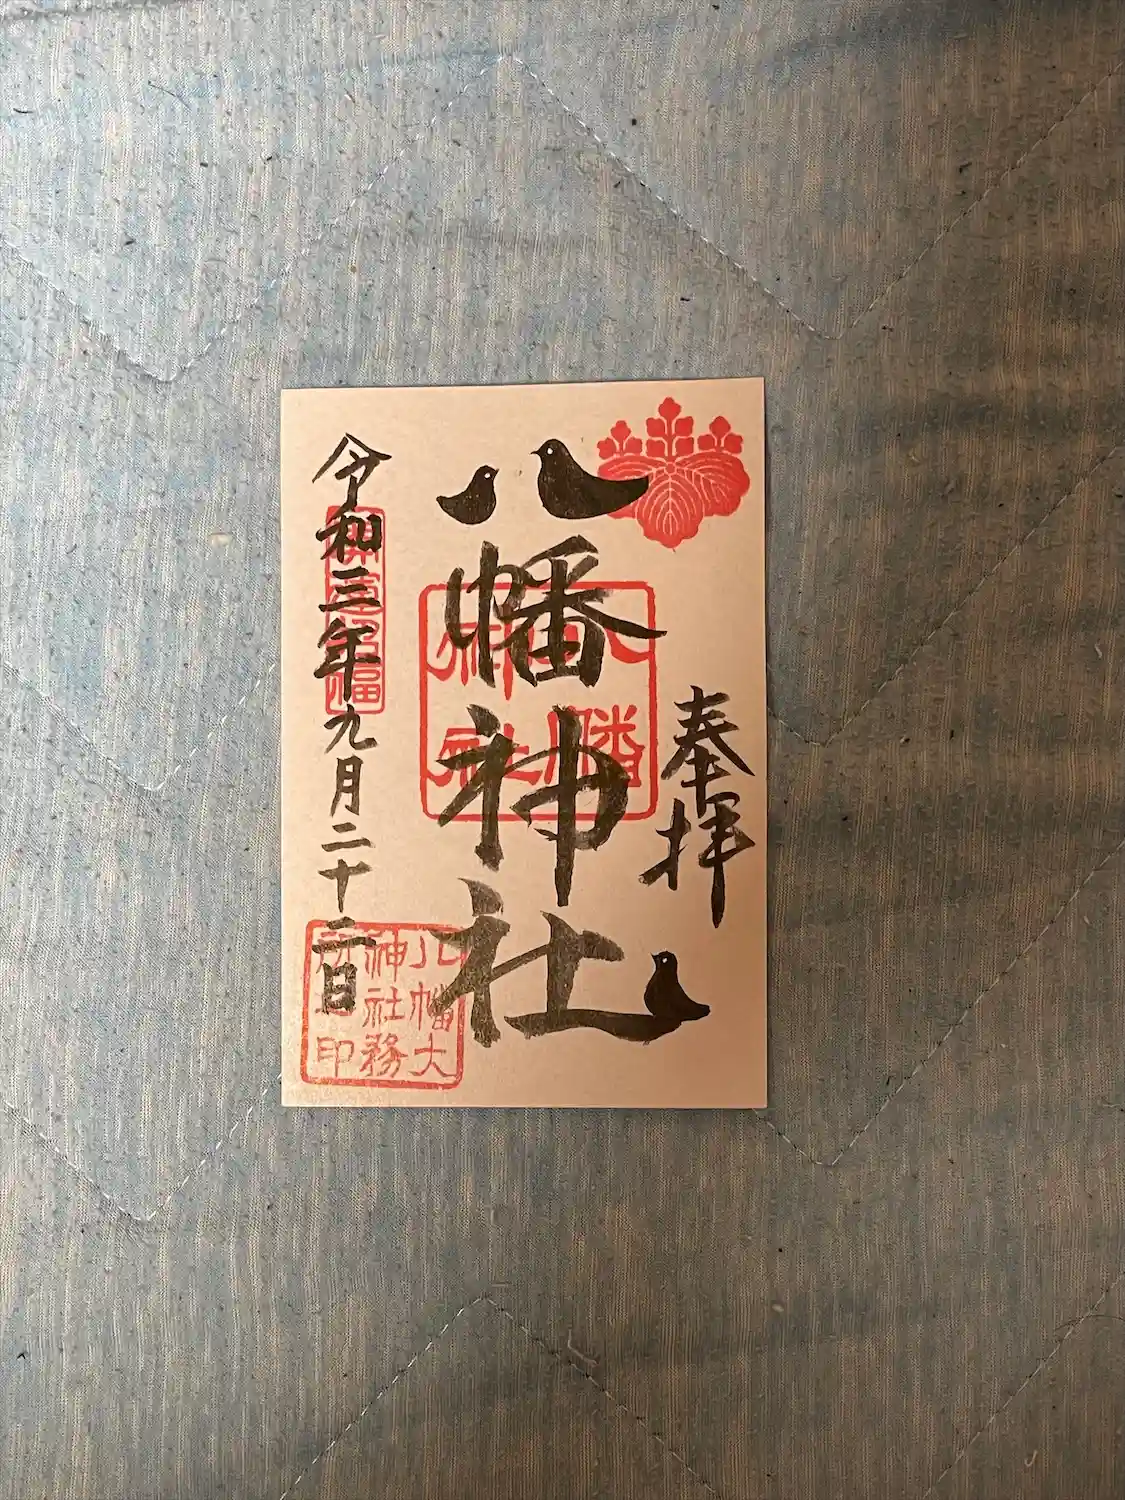 奉拝
八幡神社
八幡
神社
令和三年九月二十二日
八幡大
神社務
印